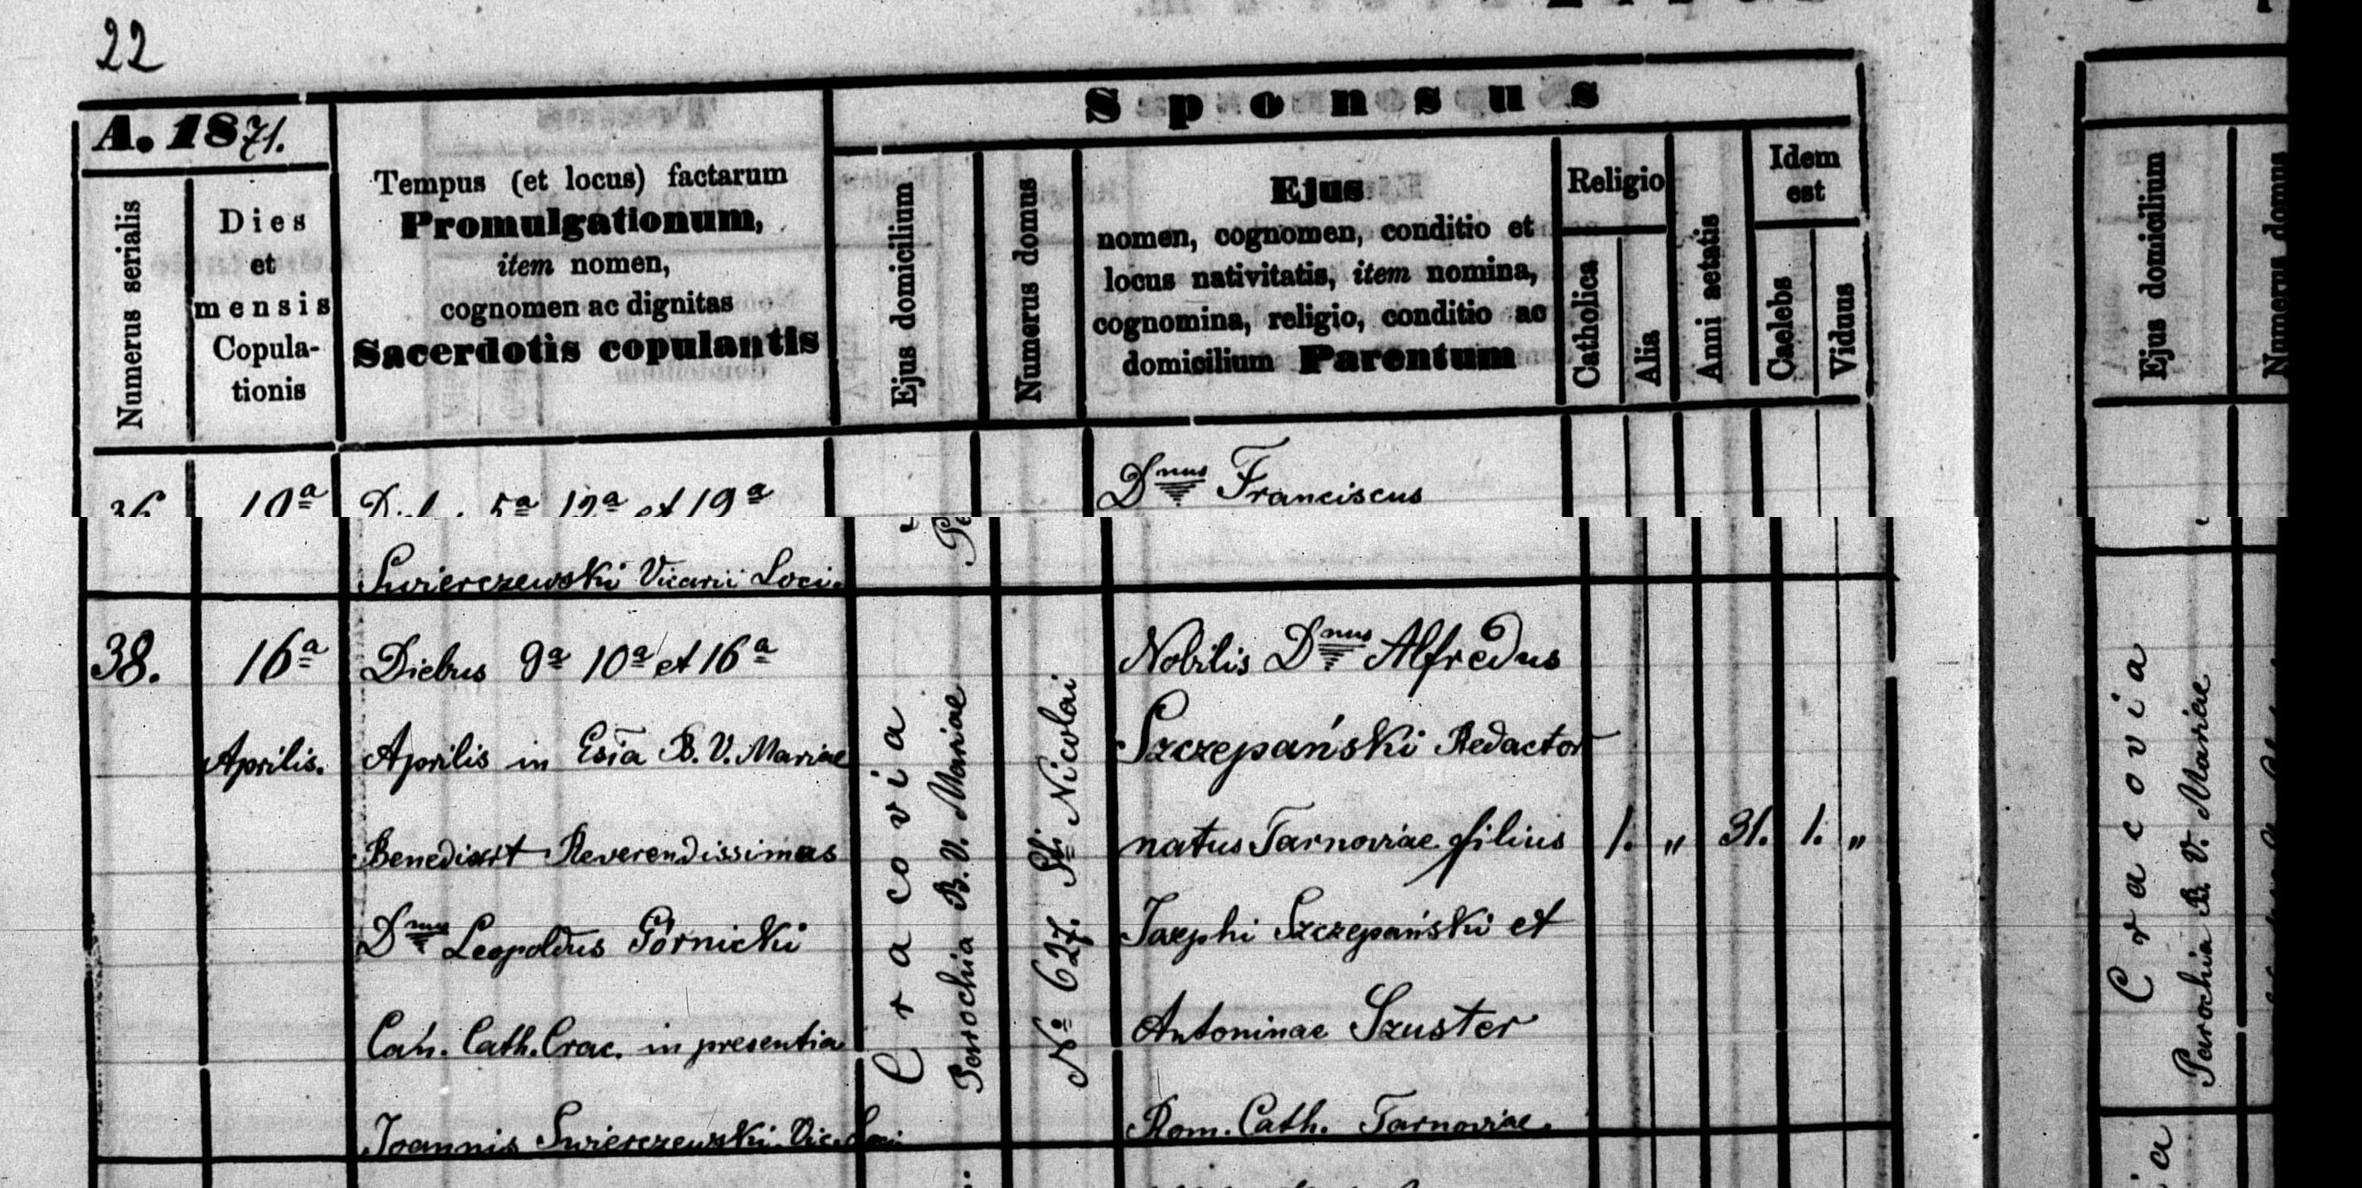 22
A. 1871.
Numerus serialis
Dies
et
mensis
Copula-
tionis
Tempus (et locus) factarum
Promulgationum,
item nomen,
cognomen ac dignitas
Sacerdotis copulantis
Sponsus
Ejus domicilium
Numerus domus
Ejus
nomen, cognomen, conditio et
locus nativitatis, item nomina,
cognomina, religio, conditio ac
domicilium Parentum
Religio
Catholica
Alia
Anni aetatis
Idem
est
Caelebs
Viduus
Ejus domicilium
Numerus domus
36
19ª
5ª 12ª et 19ª
Dnus Franciscus
Swierczewski Vicarii Loci.
38.
16ª
Aprilis.
Diebus 9ª 10ª et 16ª
Aprilis in Esia B. V. Mariae
Benedixit Reverendissimus
Dnus Leopoldus Górnicki
Can. Cath. Crac. in presentia
Joannis Swierczewski Vic. Loci
Cracovia
Parochia B. V. Mariae
Nº 627. Sti Nicolai
Nobilis Dnus Alfredus
Szczepański Redactor
natus Tarnoviae filius
Josephi Szczepański et
Antoninae Szuster
Rom. Cath. Tarnoviae.
1. „ 31. 1. „
Cracovia
Parochia B. V. Mariae